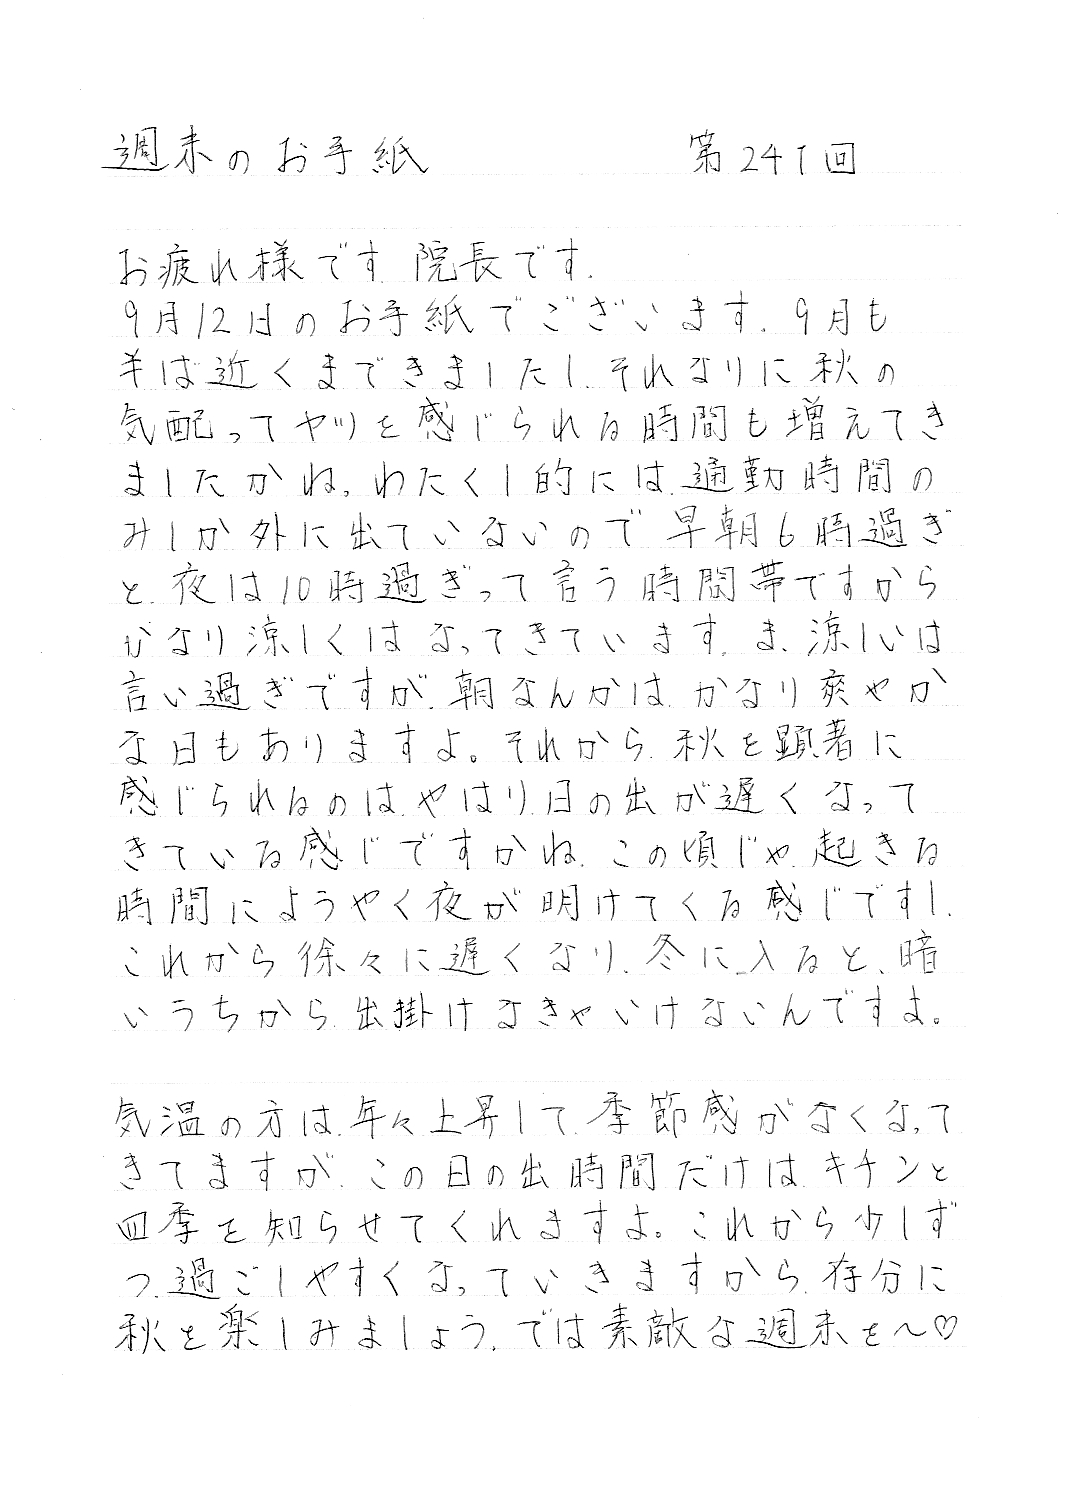 週末のお手紙 第241回
お疲れ様です.院長です.
9月12日のお手紙でございます.9月も
半ば近くまできましたし.それなりに秋の
気配ってヤツを感じられる時間も増えてき
ましたかね。わたくし的には.通勤時間の
みしか外に出ていないので早朝6時過ぎ
と.夜は10時過ぎって言う時間帯ですから
かなり涼しくはなってきています.ま、涼しいは
言い過ぎですが.朝なんかは.かなり爽やか
な日もありますよ。それから.秋を顕著に
感じられるのは.やはり.日の出が遅くなって
きている感じですかね.この頃じゃ.起きる
時間にようやく夜が明けてくる感じですし.
これから徐々に遅くなり.冬に入ると、暗
いうちから.出掛けなきゃいけないんですよ。
気温の方は.年々上昇して.季節感がなくなって
きてますが.この日の出時間だけは.キチンと
四季を知らせてくれますよ。これから少しず
つ.過ごしやすくなっていきますから.存分に
秋を楽しみましょう.では素敵な週末を〜♡